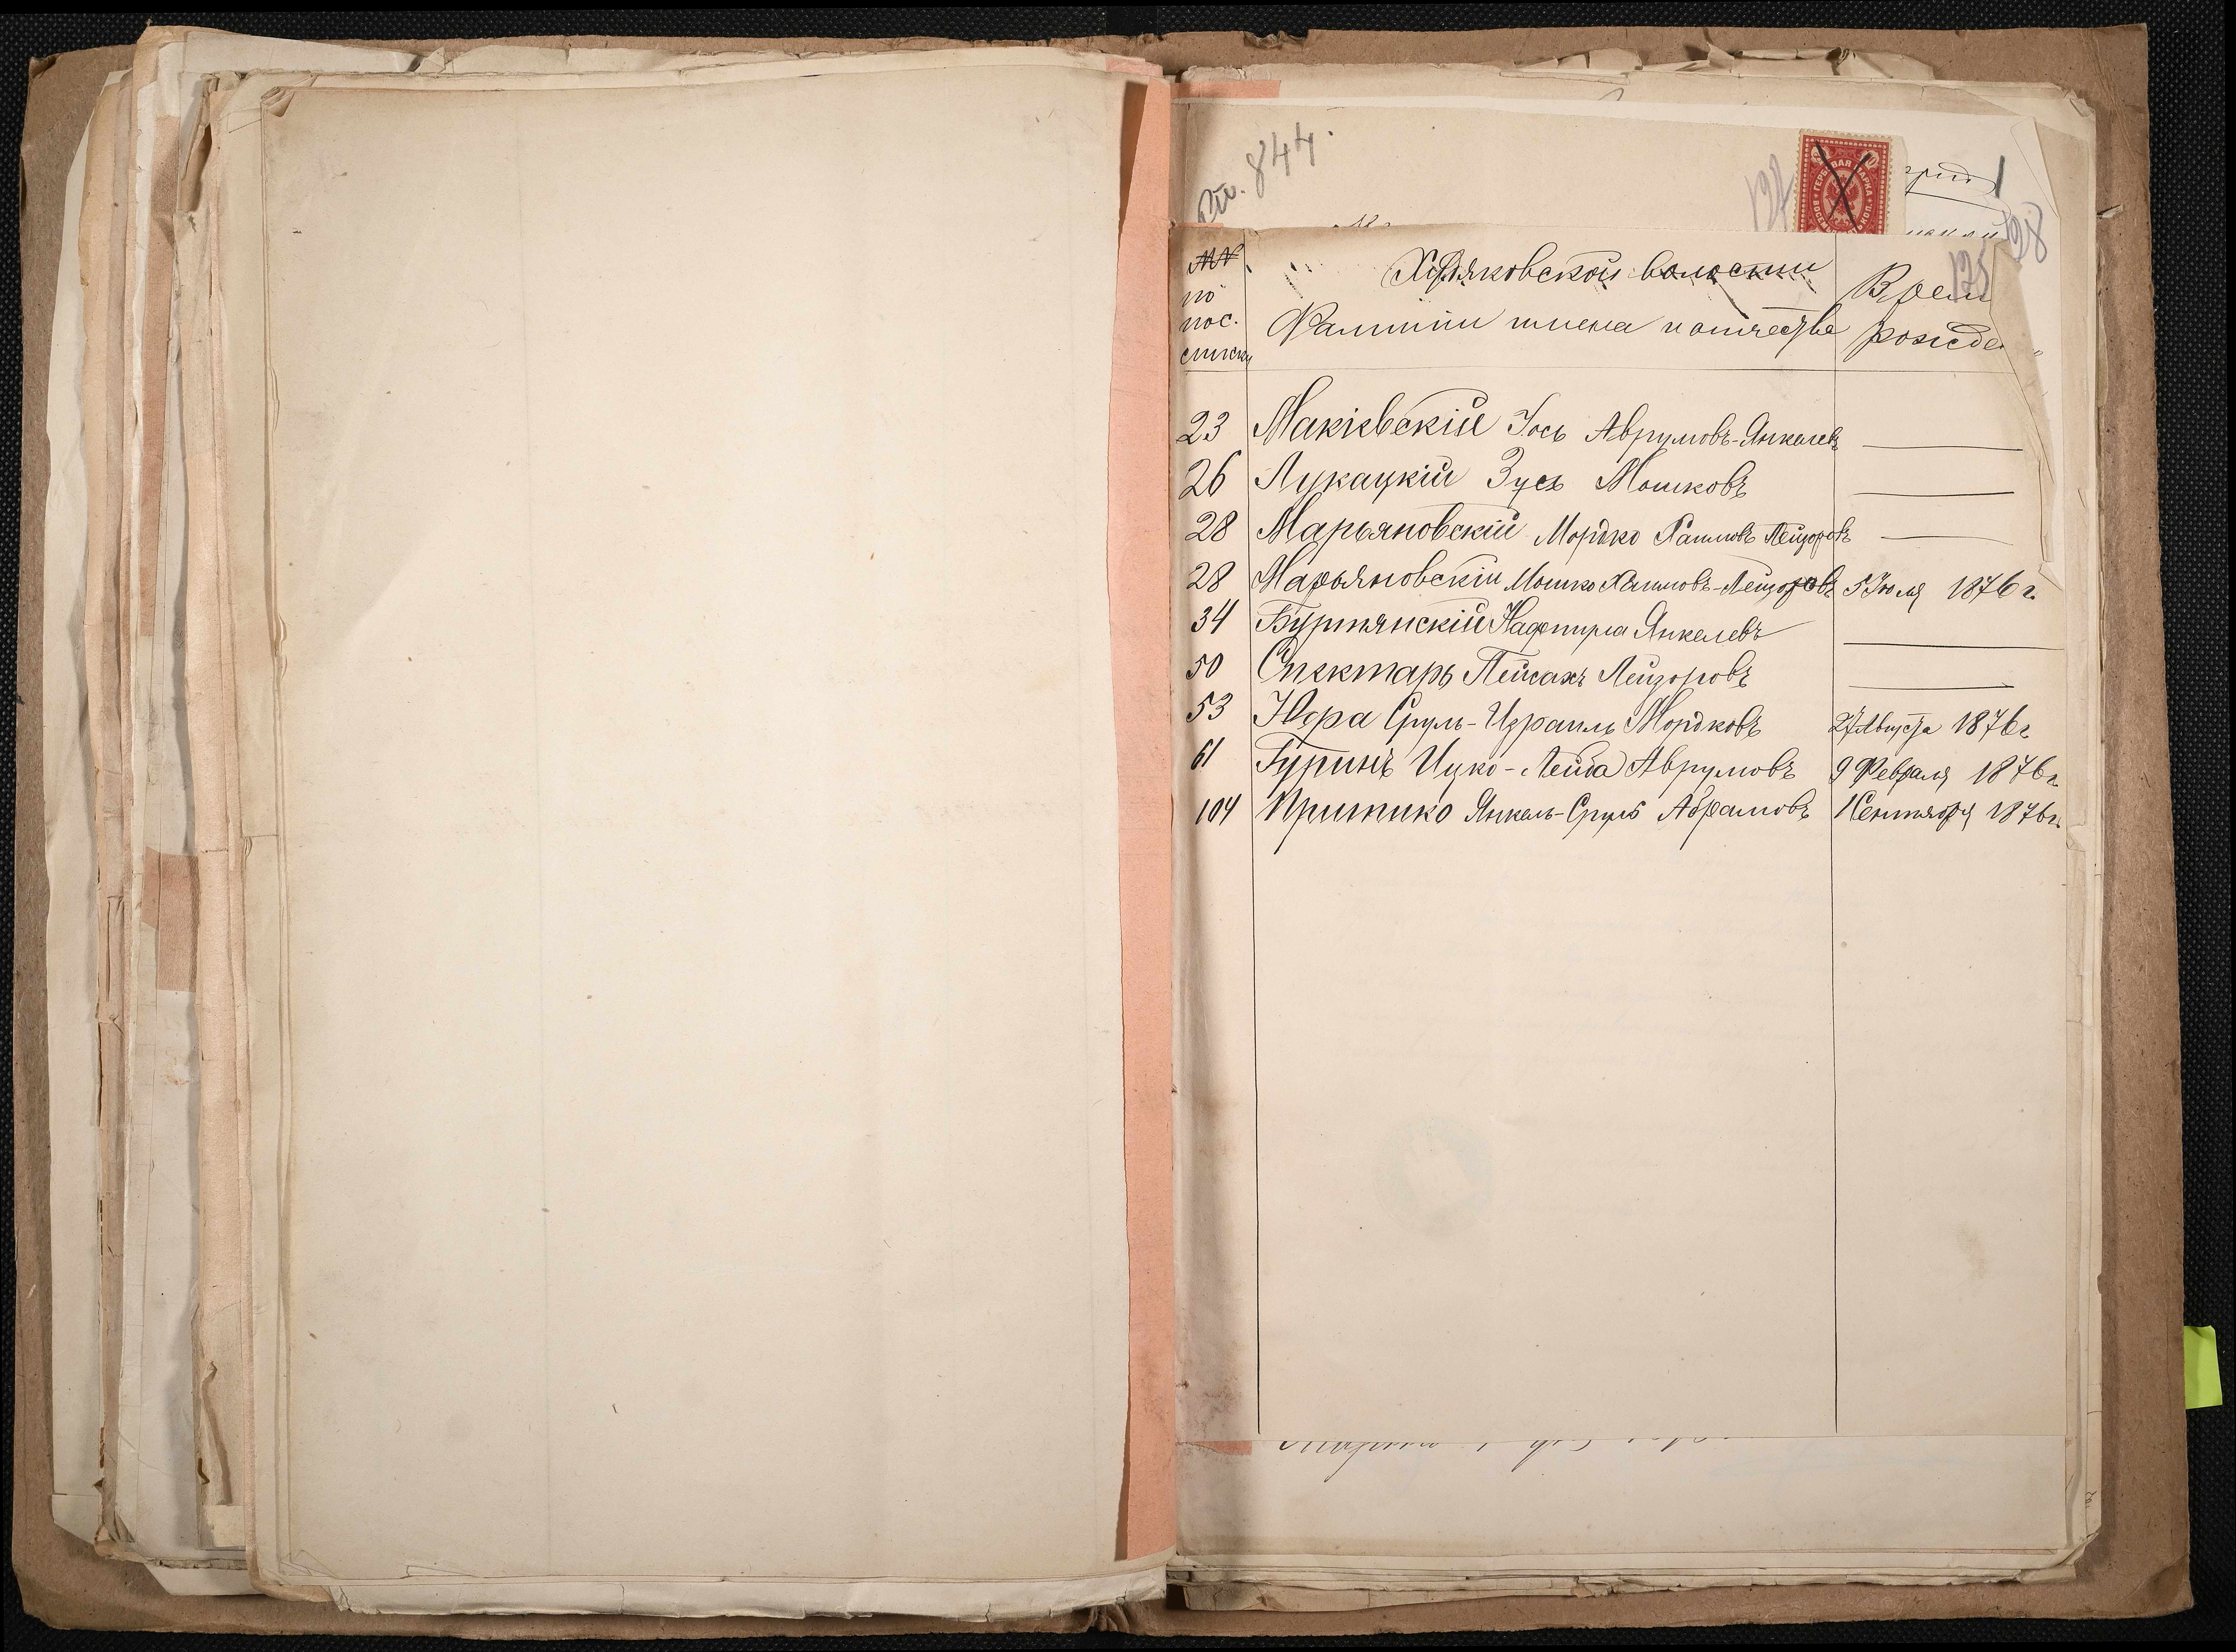 844.
127
ГЕРБОВАЯ МАРКА
128
125
№№ по пос. списку
Ходяковской волости
Фамилии имена и отчества
Время рожде
23 Макіевскій Іось Аврумовъ-Янкелевъ
26 Лукацкій Зусь Мошковъ
28 Марьяновскій Мордко Хаимовъ Лейзоровъ
28 Марьяновскій Мошко Хаимовъ-Лейзоровъ 5 Іюля 1876 г.
34 Буртянскій Янкелевъ
50 Спектарь Пейсахъ Лейзоровъ
53 Юдра Сруль-Израиль Мордковъ 27 Августа 1876 г
61 Гуринъ Ицко-Лейба Аврумовъ 9 Февраля 1876 г.
104 Притико Янкель-Сруль Абрамовъ 1 Сентября 1876 г.